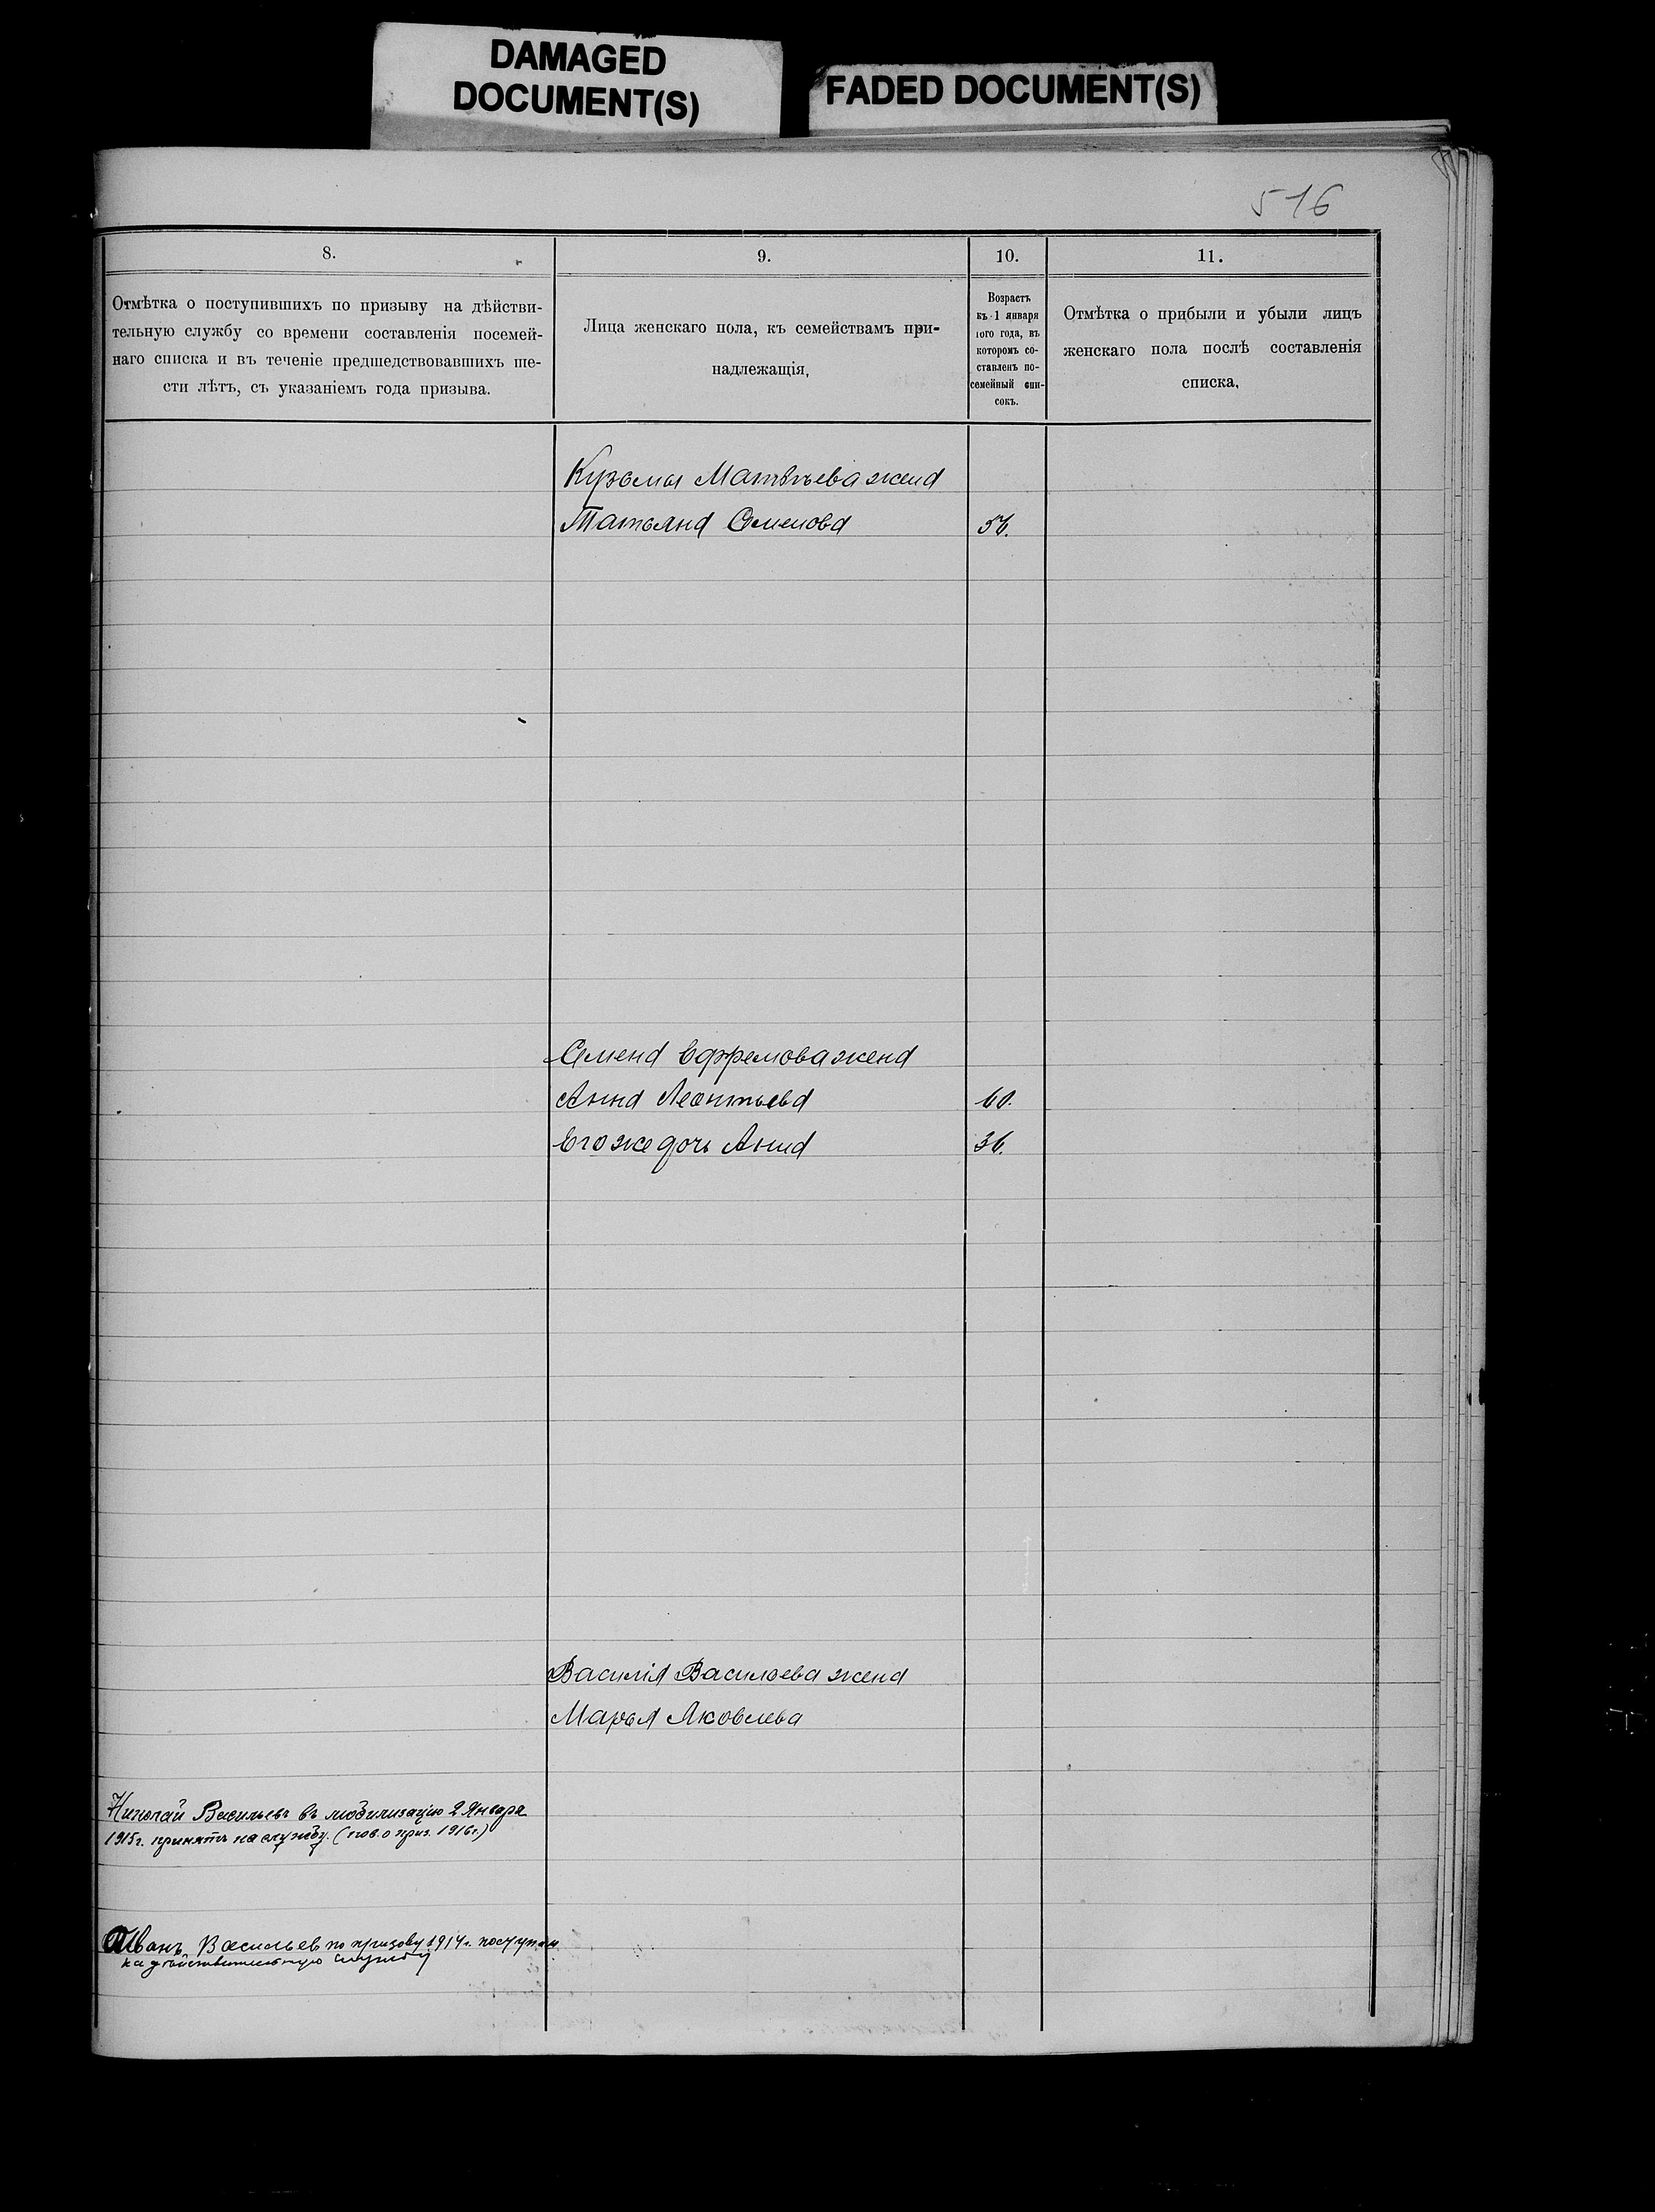 DAMAGED
DOCUMENT(S)
FADED DOCUMENT(S)
516
8.
9.
10.
11.
Отмѣтка о поступившихъ по призыву на дѣйстви-
тельную службу со времени составленія посемей-
наго списка и въ теченіе предшедствовавшихъ ше-
сти лѣтъ, съ указаніемъ года призыва.
Лица женскаго пола, къ семействамъ при-
надлежащія,
Возрастъ
къ 1 января
того года, въ
которомъ со-
ставленъ по-
семейный спи-
сокъ.
Отмѣтка о прибыли и убыли лицъ
женскаго пола послѣ составленія
списка,
Кузьмы Матвѣева жена
Татьяна Семенова 56.
Семена Ефремова жена
Анна Леонтьева 60.
Его же дочь Анна 36.
Василія Васильева жена
Марья Яковлева
Николай Васильевъ въ мобилизацію 2 Января
1915г. принятъ на службу. (нов. о приз. 1916г.)
Иванъ Васильев по призову 1914г. поступил
на дѣйствительную службу